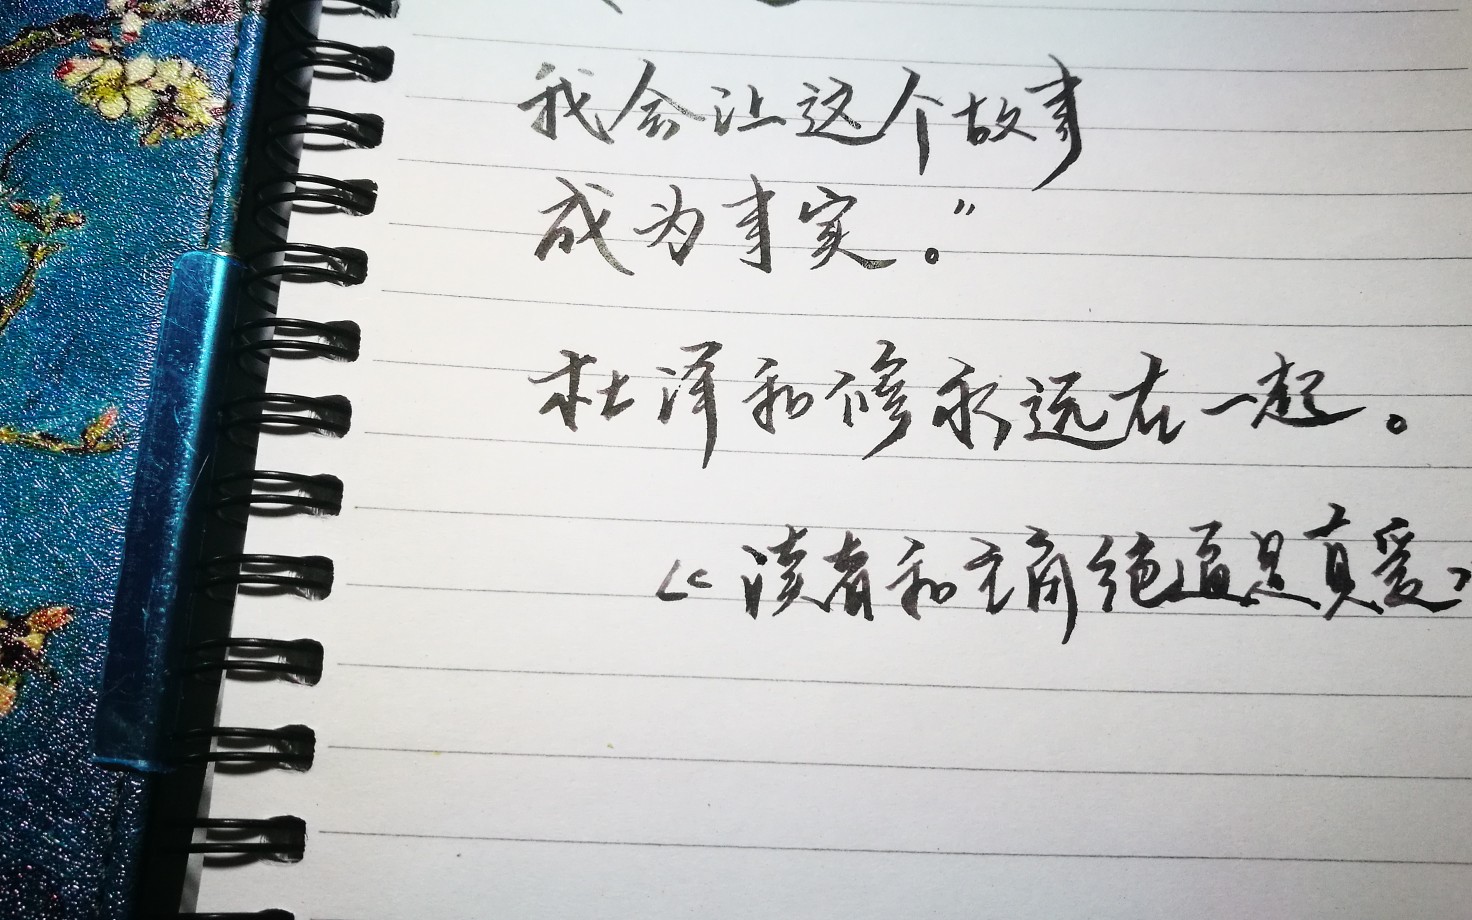 我会让这个故事
成为事实。"
杜泽和修永远在一起。
《读者和主角绝逼是真爱》